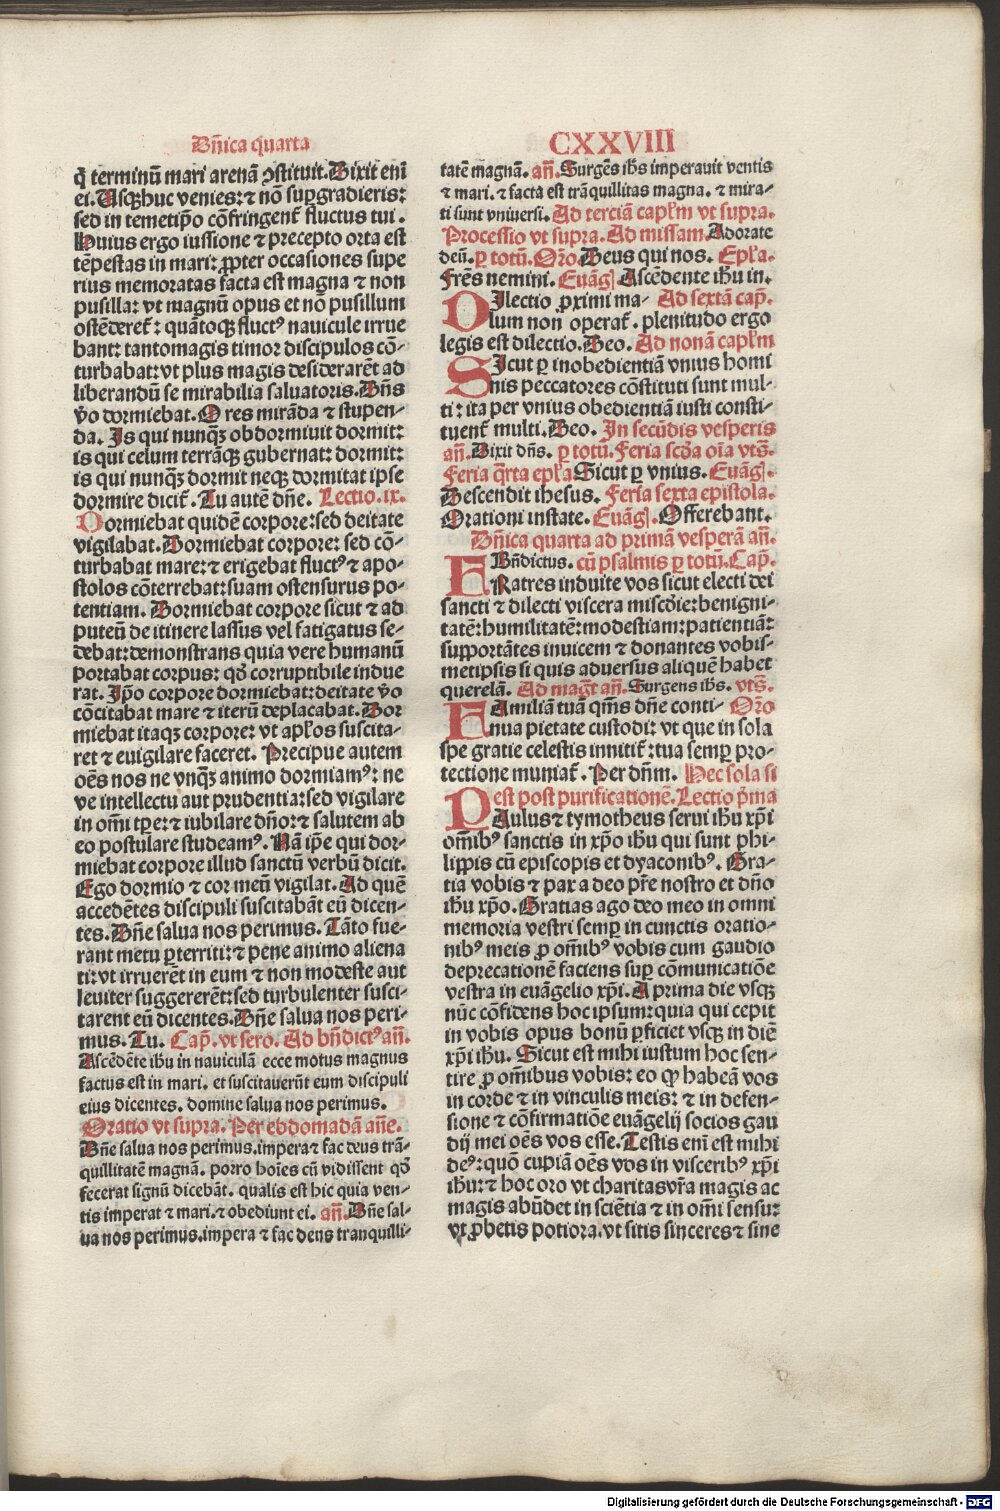 Dñica quarta
CXXVIII
q̃ terminũ mari arenã ꝯstituit. Dixit eni
ei. Usqꝫ huc venies: ⁊ nõ supgradieris:
sed in temetip̃o cõfringent̃ fluctus tui .
Huius ergo iussione ⁊ precepto orta est
tẽpestas in mari: ꝓpter occasiones supe
rius memoratas facta est magna ⁊ non
pusilla: vt magnũ opus et nõ pusillum
ostẽderet̃: quãtoqꝫ fluctꝰ nauicule irrue
bant: tantomagis timor discipulos cõ-
turbabat: vt plus magis desiderarẽt ad
liberandũ se mirabilia saluatoris. Dñs
ṽo dormiebat. O res mirãda ⁊ stupen-
da. Is qui nunqꝫ obdormiuit dormit:
is qui celum terrãqꝫ gubernat: dormit:
is qui nunqꝫ dormit neqꝫ dormitat ipse
dormire dicit̃. Tu autẽ dñe. Lectio. ix.
Dormiebat quidẽ corpore: sed deitate
vigilabat. Dormiebat corpore: sed cõ-
turbabat mare: ⁊ erigebat fluctꝰ ⁊ apo-
stolos cõterrebat: suam ostensurus po-
tentiam. Dormiebat corpore sicut ⁊ ad
puteũ de itinere lassus vel fatigatus se-
debat: demonstrans quia vere humanũ
portabat corpus: qđ corruptibile indue
rat. Ip̃o corpore dormiebat: deitate ṽo
cõcitabat mare ⁊ iterũ deplacabat. Dor
miebat itaqꝫ corpore: vt apl̃os suscita-
ret ⁊ euigilare faceret. Precipue autem
oẽs nos ne vnqꝫ animo dormiamꝰ: ne
ve intellectu aut prudentia: sed vigilare
in om̃i tꝑe: ⁊ iubilare dño: ⁊ salutem ab
eo postulare studeamꝰ. Nã ip̃e qui dor-
miebat corpore illud sanctũ verbũ dicit.
Ego dormio ⁊ cor meũ vigilat. Ad quẽ
accedẽtes discipuli suscitabãt eũ dicen-
tes. Dñe salua nos perimus. Tãto fue-
rant metu ꝑterriti: ⁊ pene animo aliena
ti: vt irruerẽt in eum ⁊ non modeste aut
leuiter suggererẽt: sed turbulenter susci-
tarent eũ dicentes. Dñe salua nos peri-
mus. Tu. Cap̃. vt sero. Ad bñdictꝰ añ.
Ascẽdẽte ihũ in nauiculã ecce motus magnus
factus est in mari. et suscitauerũt eum discipuli
eius dicentes. domine salua nos perimus.
Oratio vt supra. Per ebdomadã añe.
Dñe salua nos perimus. impera ⁊ fac deus trã-
quillitatẽ magnã. porro hoĩes cũ vidissent qđ
fecerat signũ dicebãt. qualis est hic quia ven-
tis imperat ⁊ mari. ⁊ obediunt ei. añ. Dñe sal-
ua nos perimus. impera ⁊ fac deus tranquilli-
tatẽ magnã. añ. Surgẽs ihs imperauit ventis
⁊ mari. ⁊ facta est trãquillitas magna. ⁊ mira-
ti sunt vniuersi. Ad terciã capl̃m vt supra.
Processio vt supra. Ad missam. Adorate
deũ. ꝑ totũ. Oro. Deus qui nos. Epl̃a.
Frẽs nemini. Euãgl̃. Ascẽdente ihũ in.
DIlectio ꝓximi ma- Ad sextã cap̃.
lum non operat̃. plenitudo ergo
legis est dilectio. Deo. Ad nonã capl̃m
SIcut ꝑ inobedientiã vnius homi
nis peccatores cõstituti sunt mul-
ti: ita per vnius obedientiã iusti consti-
tuent̃ multi. Deo. In secũdis vesperis
añ. Dixit dñs. ꝑ totũ. Feria scđa oĩa vts̃.
Feria q̃rta epl̃a. Sicut ꝑ vnius. Euãgl̃.
Descendit ihesus. Feria sexta epistola.
Orationi instate. Euãgl̃. Offerebant.
Dñica quarta ad primã vesperã añ.
Bñdictus. cũ psalmis ꝑ totũ. Cap̃.
FRatres induite vos sicut electi dei
sancti ⁊ dilecti viscera miscdie: benigni-
tatẽ: humilitatẽ: modestiam: patientiã:
supportãtes inuicem ⁊ donantes vobis-
metipsis si quis aduersus aliquẽ habet
querelã. Ad magt̃ añ. Surgens ihs. vts̃.
FAmiliã tuã qms̃ dñe conti- Oro
nua pietate custodi: vt que in sola
spe gratie celestis innitit̃: tua semꝑ pro-
tectione muniat̃. Per dñm. Hec sola si
est post purificationẽ. Lectio p̃ma
PAulus ⁊ tymotheus serui ihũ xp̃i
om̃ibꝰ sanctis in xp̃o ihũ qui sunt phi-
lippis cũ episcopis et dyaconibꝰ. Gra-
tia vobis ⁊ pax a deo pr̃e nostro et dño
ihũ xp̃o. Gratias ago deo meo in omni
memoria vestri semꝑ in cunctis oratio-
nibꝰ meis ꝓ om̃ibꝰ vobis cum gaudio
deprecationẽ faciens suꝑ cõmunicatiõe
vestra in euãgelio xp̃i. A prima die vsqꝫ
nũc cõfidens hoc ipsum: quia qui cepit
in vobis opus bonũ ꝑficiet vsqꝫ in diẽ
xp̃i ihũ. Sicut est mihi iustum hoc sen-
tire ꝓ om̃ibus vobis: eo ꝙ habeã vos
in corde ⁊ in vinculis meis: ⁊ in defen-
sione ⁊ cõfirmatiõe euãgelij socios gau
dij mei oẽs vos esse. Testis eni est mihi
deꝰ: quõ cupiã oẽs vos in visceribꝰ xp̃i
ihũ: ⁊ hoc oro vt charitas vr̃a magis ac
magis abũdet in sciẽtia ⁊ in om̃i sensu:
vt ꝓbetis potiora. vt sitis sinceres ⁊ sine
Digitalisierung gefördert durch die Deutsche Forschungsgemeinschaft - DFG